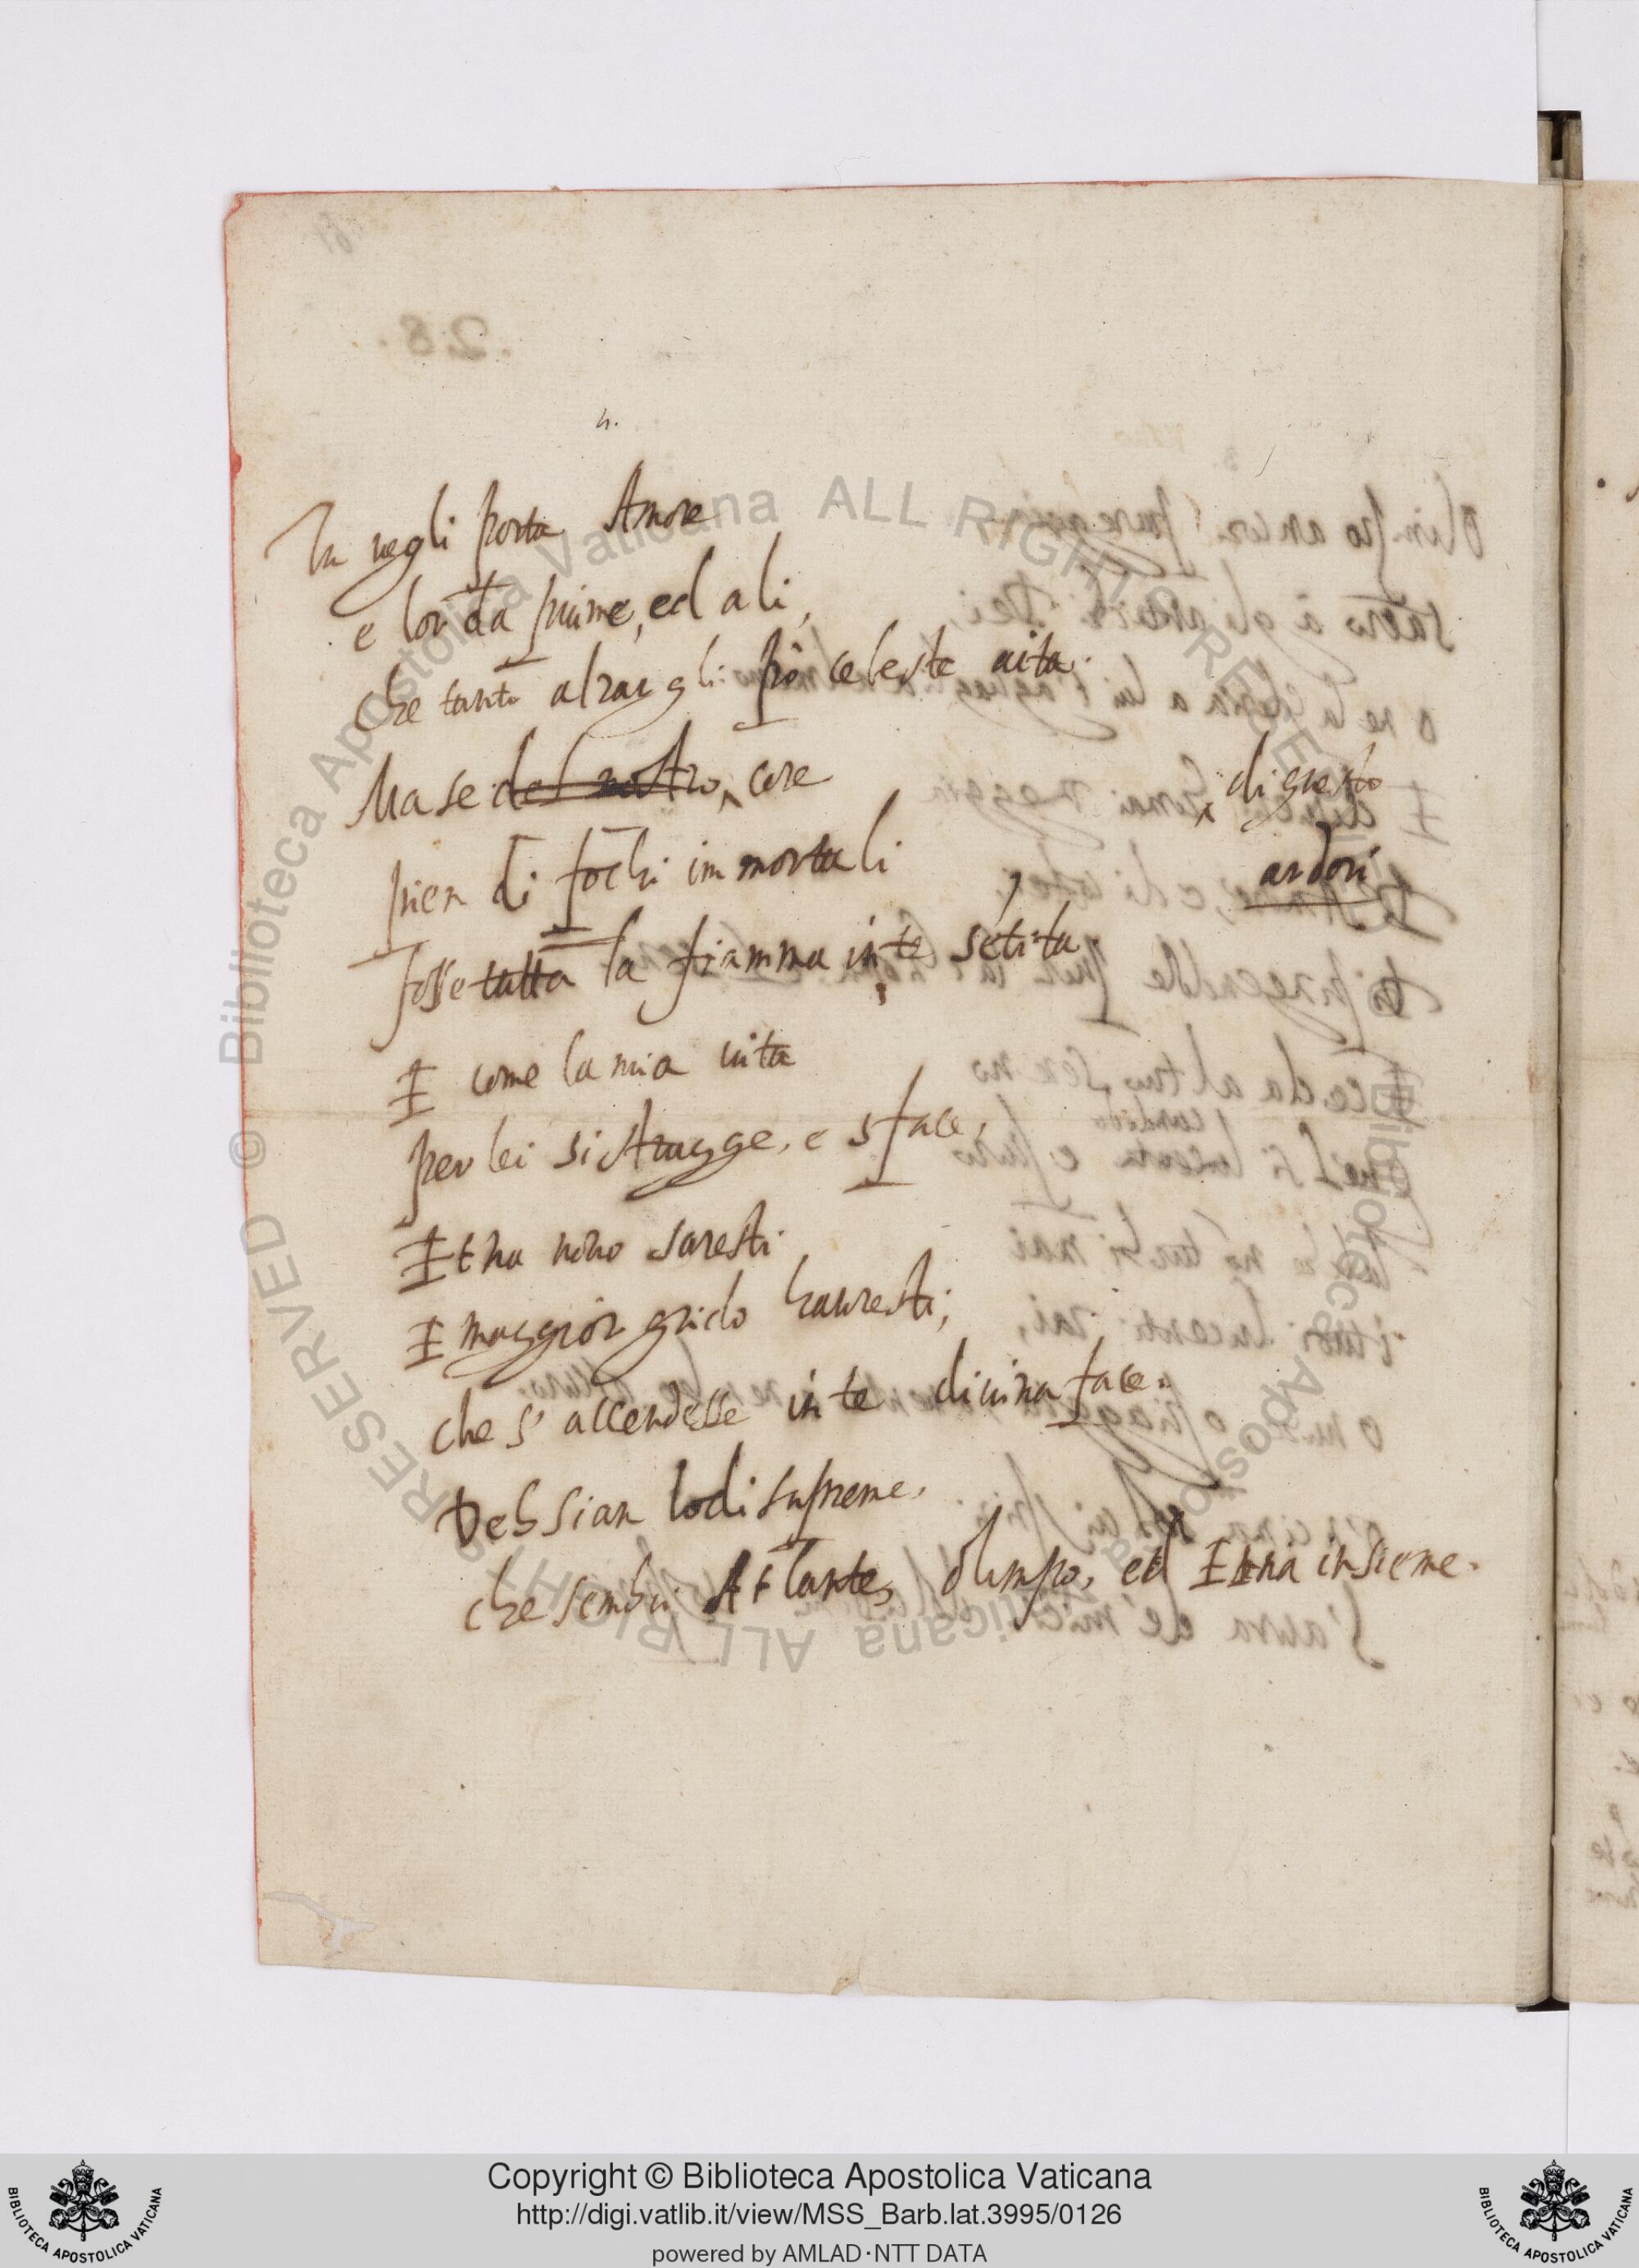 4.
Tu vegli porta Amore
e lor da piume, ed ali,
Che tanto alzargli pò celeste aita.
Ma se del nostro ^ core ^ di questo
pien di fochi immortali ardori
fosse tutta la fiamma in te sẽtita
E come la mia vita
per lei si strugge, e sface,
Etna novo saresti
E maggior grido havresti;
che s' accendesse in te divina face.
Deh sian lodi supreme,
che sembri Atlante, Olimpo, ed Etna insieme.
© Biblioteca Apostolica Vaticana ALL RIGHTS RESERVED
Copyright © Biblioteca Apostolica Vaticana
http://digi.vatlib.it/view/MSS_Barb.lat.3995/0126
powered by AMLAD·NTT DATA
BIBLIOTECA APOSTOLICA VATICANA
BIBLIOTECA APOSTOLICA VATICANA